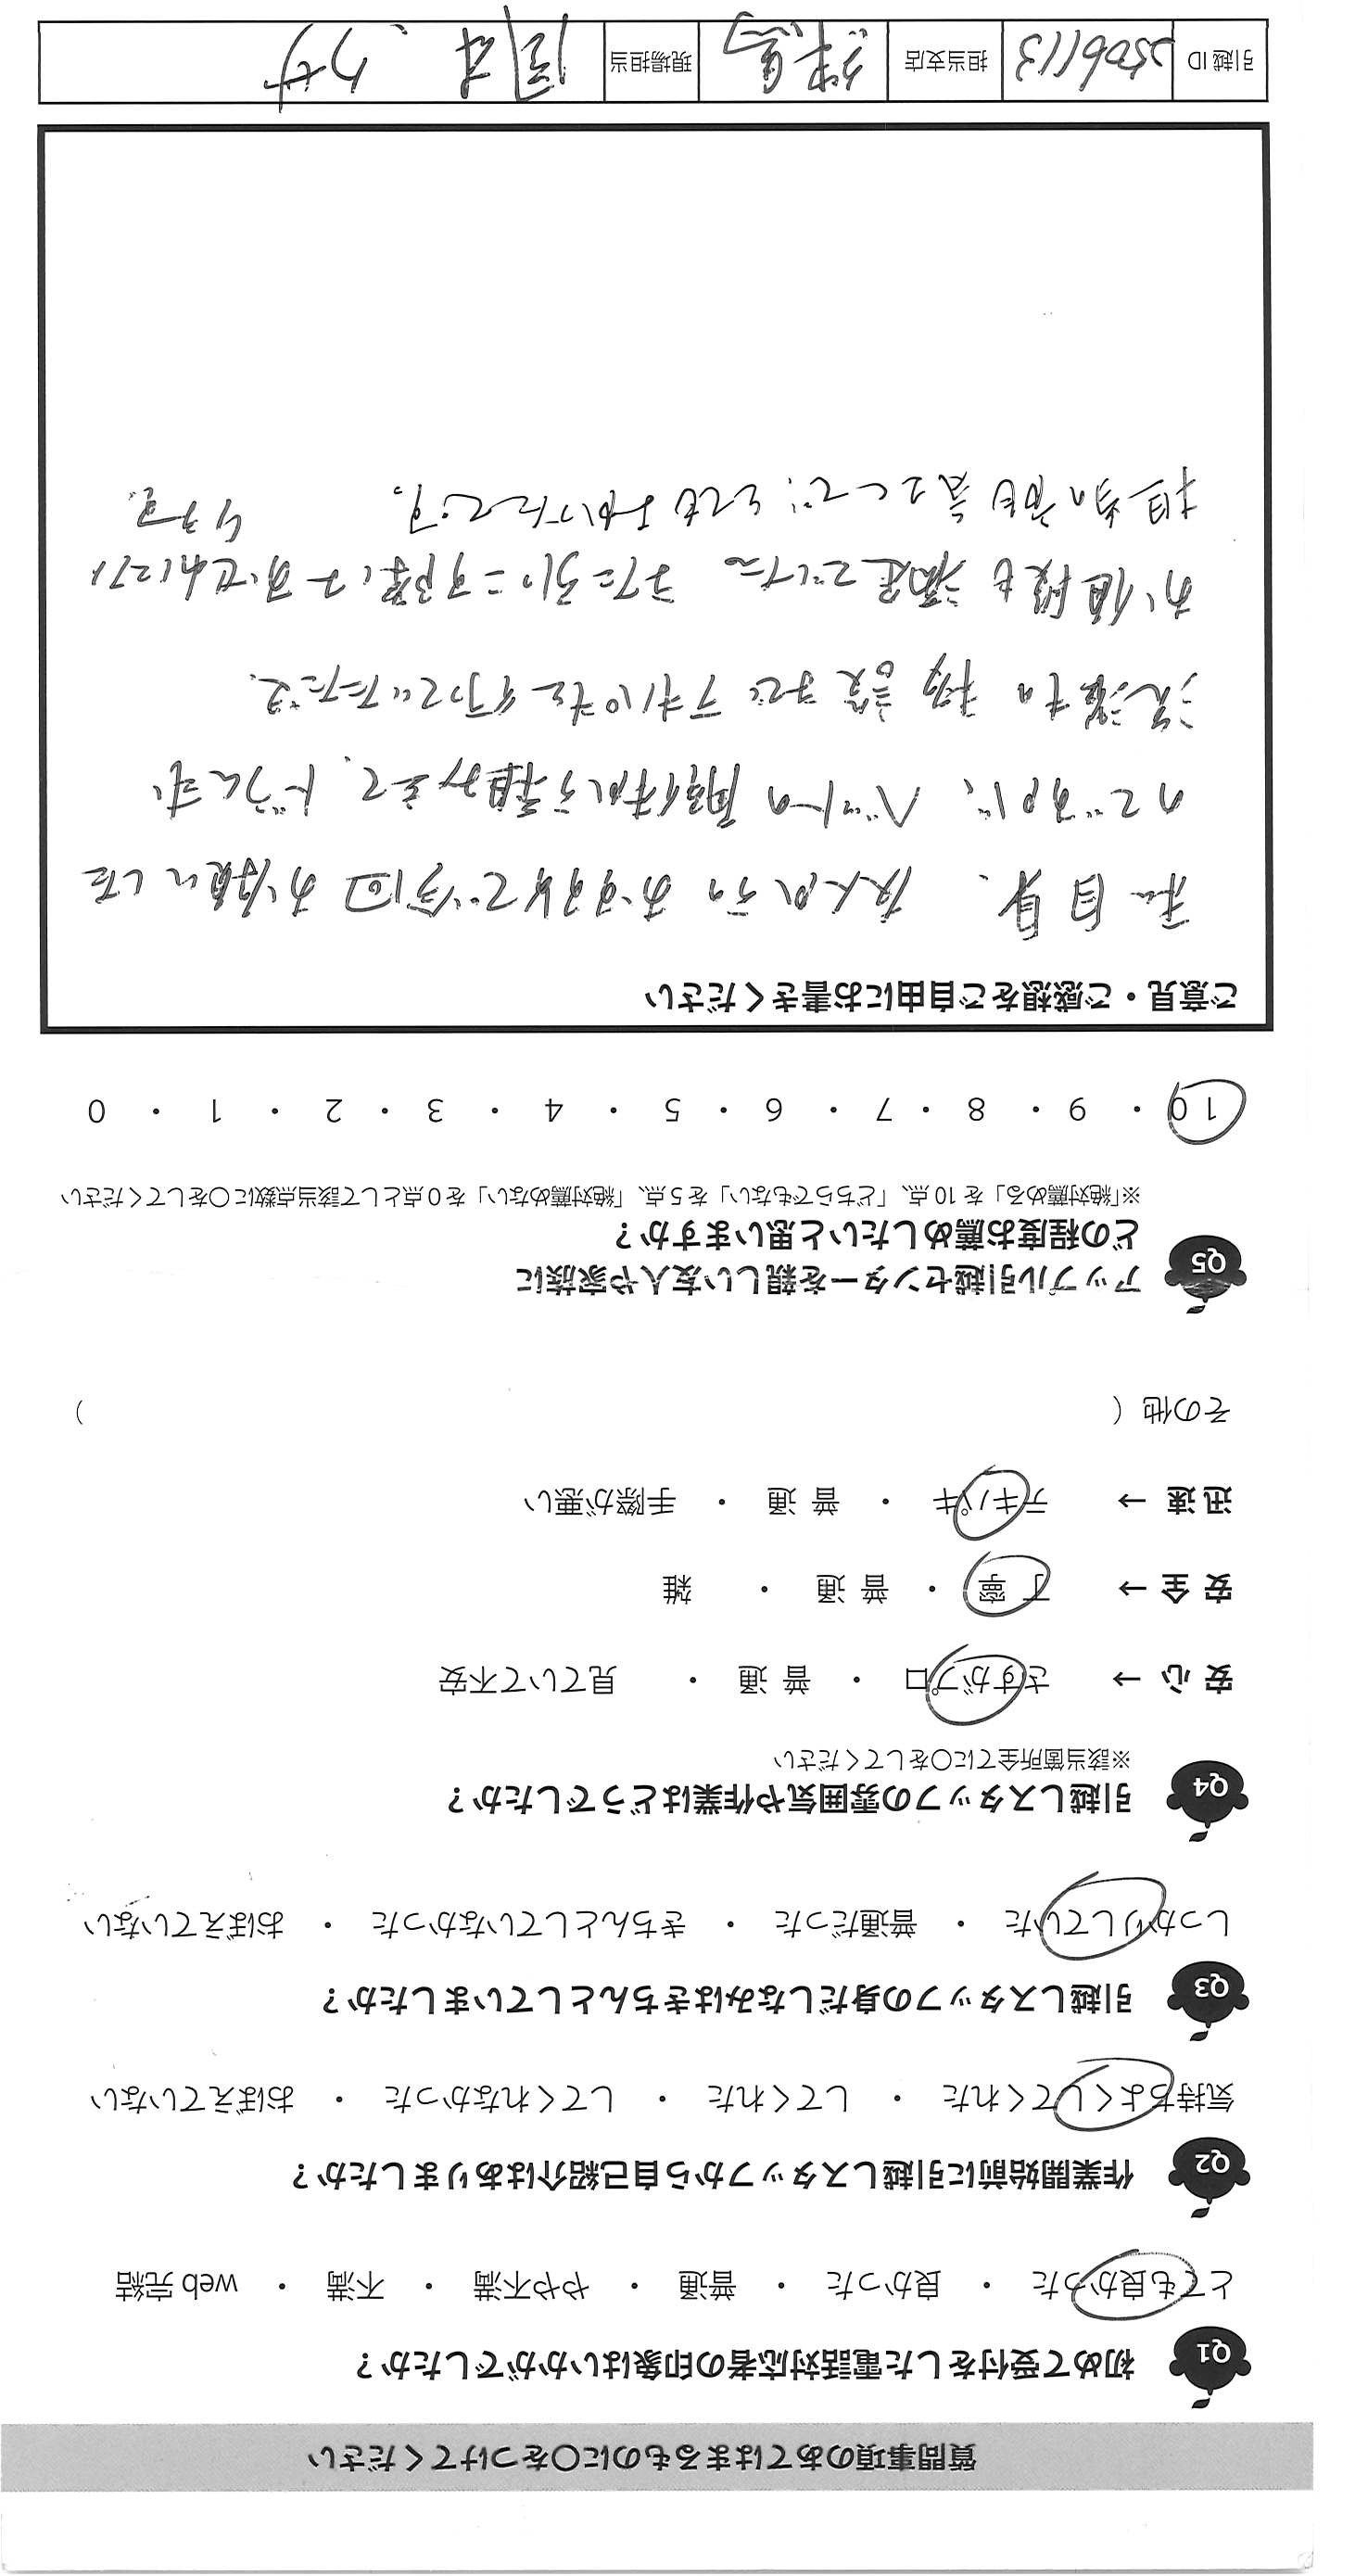 質問事項のあてはまるものに〇をつけてください
Q1 初めて受付をした電話対応者の印象はいかがでしたか？
とても良かった ・ 良かった ・ 普通 ・ やや不満 ・ 不満 ・ web 完結
Q2 作業開始前に引越しスタッフから自己紹介はありましたか？
気持ちよくしてくれた ・ してくれた ・ してくれなかった ・ おぼえていない
Q3 引越しスタッフの身だしなみはきちんとしていましたか？
しっかりしていた ・ 普通だった ・ きちんとしていなかった ・ おぼえていない
Q4 引越しスタッフの雰囲気や作業はどうでしたか？
※該当箇所全てに〇をしてください
安 心 → さすがプロ ・ 普 通 ・ 見ていて不安
安 全 → 丁 寧 ・ 普 通 ・ 雑
迅 速 → テキパキ ・ 普 通 ・ 手際が悪い
その他（ ）
Q5 アップル引越センターを親しい友人や家族に
どの程度お薦めしたいと思いますか？
※「絶対薦める」を 10 点、「どちらでもない」を 5 点、「絶対薦めない」を 0 点として該当点数に〇をしてください
10 ・ 9 ・ 8 ・ 7 ・ 6 ・ 5 ・ 4 ・ 3 ・ 2 ・ 1 ・ 0
ご意見・ご感想をご自由にお書きください
私自身、友人からのおすすめで今回お願いした
のですが、ベットの解体から組み立て、ドラム式
洗濯機の移設までテキパキと行っていただき
お値段も満足でした また引っこす際は
担当の方も とてもよかったです。
引越 ID 2506113 担当支店 練馬 現場担当 岡本